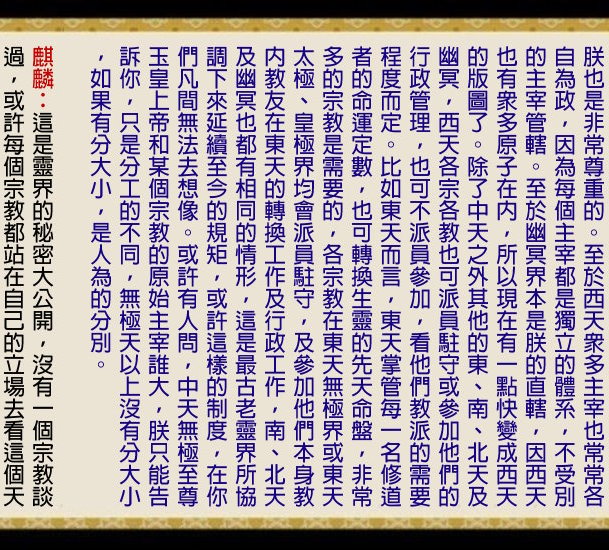 朕也是非常尊重的。至於西天眾多主宰也常常各
自為政，因為每個主宰都是獨立的體系，不受別
的主宰管轄。至於幽冥界本是朕的直轄，因西天
也有眾多原子在內，所以現在有一點快變成西天
的版圖了。除了中天之外其他的東、南、北天及
幽冥，西天各宗各教也可派員駐守或參加他們的
行政管理，也可不派員參加，看他們教派的需要
程度而定。比如東天而言，東天掌管每一名修道
者的命運定數，也可轉換生靈的先天命盤，非常
多的宗教是需要的，各宗教在東天無極界或東天
太極、皇極界均會派員駐守，及參加他們本身教
內教友在東天的轉換工作及行政工作，南、北天
及幽冥也都有相同的情形，這是最古老靈界所協
調下來延續至今的規矩，或許這樣的制度，在你
們凡間無法去想像。或許有人問，中天無極至尊
玉皇上帝和某個宗教的原始主宰誰大，朕只能告
訴你，只是分工的不同，無極天以上沒有分大小
，如果有分大小，是人為的分別。
麒麟：這是靈界的秘密大公開，沒有一個宗教談
過，或許每個宗教都站在自己的立場去看這個天